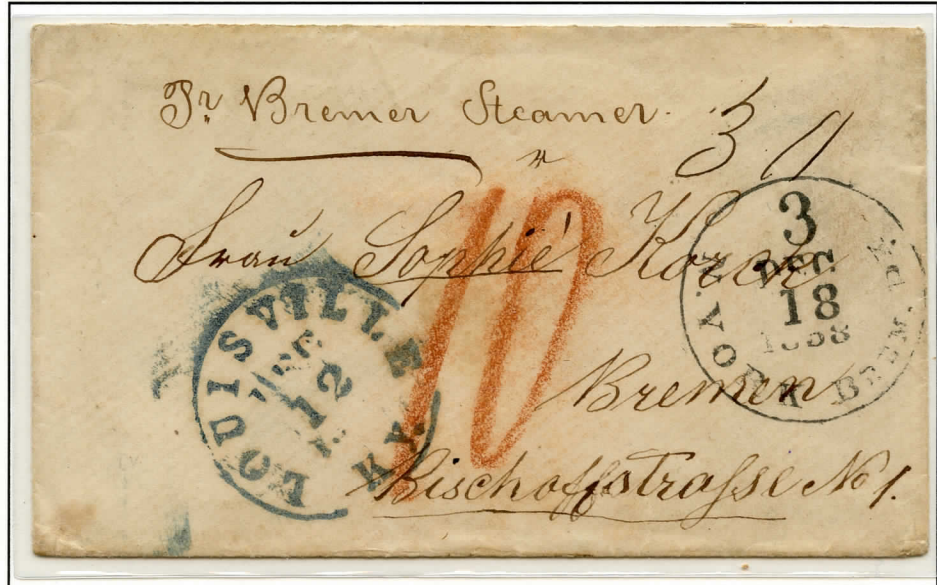 Pr Bremer Steamer.
30
Frau Sophie
10
Bremen
Bischoffstrasse No 1.
LOUISVILLE KY.
DEC
12
N. YORK BREM. PK.
3
DEC
18
1858